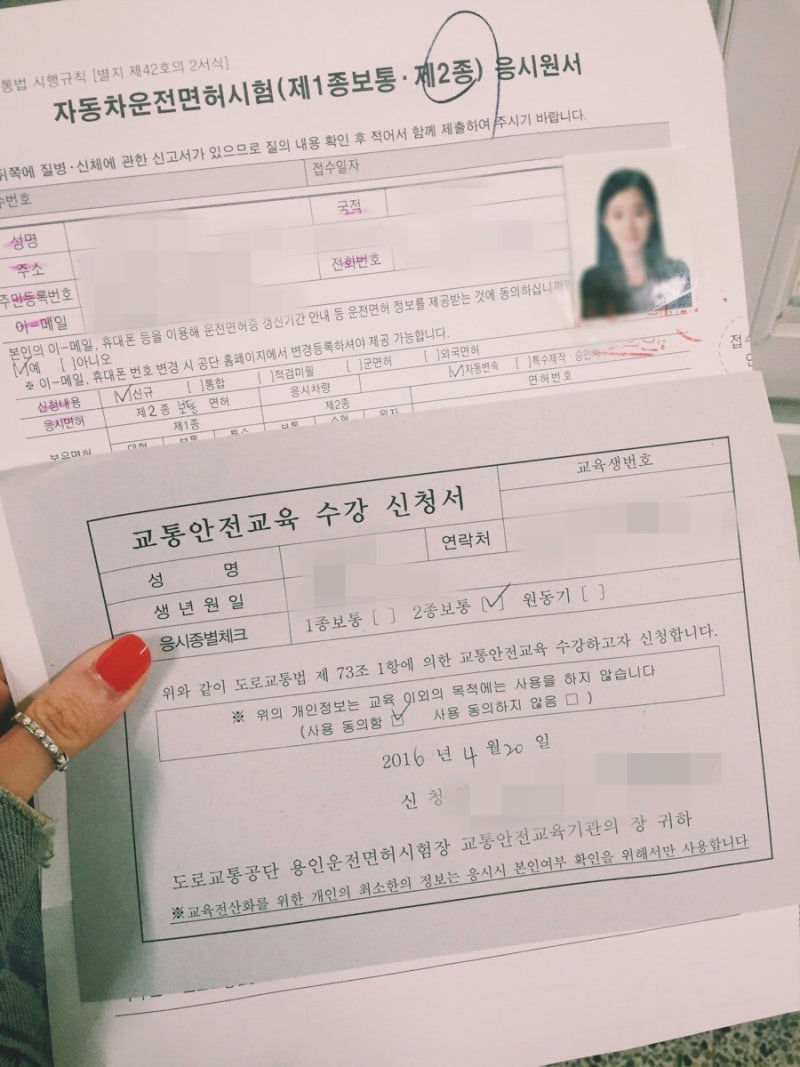 통법 시행규칙 [별지 제42호의 2서식]
자동차운전면허시험(제1종보통·제2종) 응시원서
뒤쪽에 질병·신체에 관한 신고서가 있으므로 질의 내용 확인 후 적어서 함께 제출하여 주시기 바랍니다.
수번호 접수일자
성명 국적
주소
전화번호
주민등록번호
이-메일
본인의 이-메일, 휴대폰 등을 이용해 운전면허증 갱신기간 안내 등 운전면허 정보를 제공받는 것에 동의하십니까?
[✓]예 [ ]아니오
※ 이-메일, 휴대폰 번호 변경 시 공단 홈페이지에서 변경등록하셔야 제공 가능합니다.
신청내용 [✓]신규 [ ]통합 [ ]적검미필 [ ]군면허 [ ]외국면허
응시면허 제2종 보통 면허 응시차량 [✓]자동변속 [ ]특수제작·승인차
제1종 제2종 면허번호
보유면허 대형 보통 특수 보통 소형 원자
접수
교통안전교육 수강 신청서
교육생번호
성 명 연락처
생년월일
응시종별체크 1종보통 [ ] 2종보통 [✓] 원동기 [ ]
위와 같이 도로교통법 제 73조 1항에 의한 교통안전교육 수강하고자 신청합니다.
※ 위의 개인정보는 교육 이외의 목적에는 사용을 하지 않습니다
(사용 동의함 ☑ 사용 동의하지 않음 □ )
2016 년 4 월 20 일
신 청
도로교통공단 용인운전면허시험장 교통안전교육기관의 장 귀하
※교육전산화를 위한 개인의 최소한의 정보는 응시시 본인여부 확인을 위해서만 사용합니다